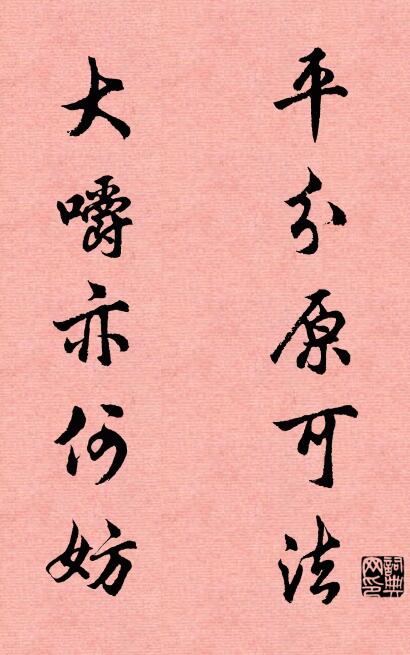 平分原可法
大嚼亦何妨
詞典網印